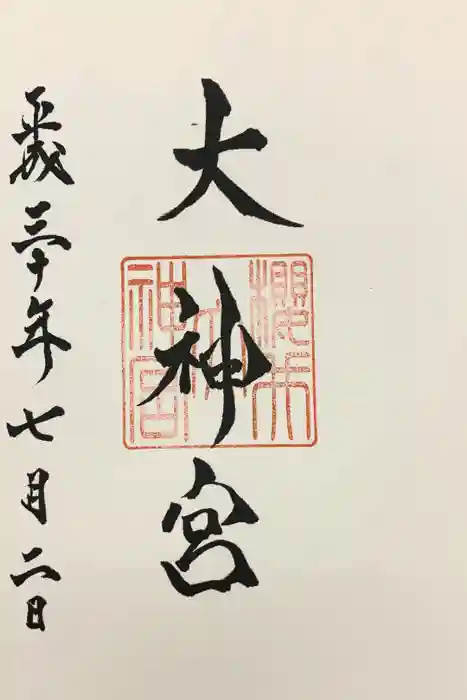 大神宮
櫻大神宮
平成三十年七月二日